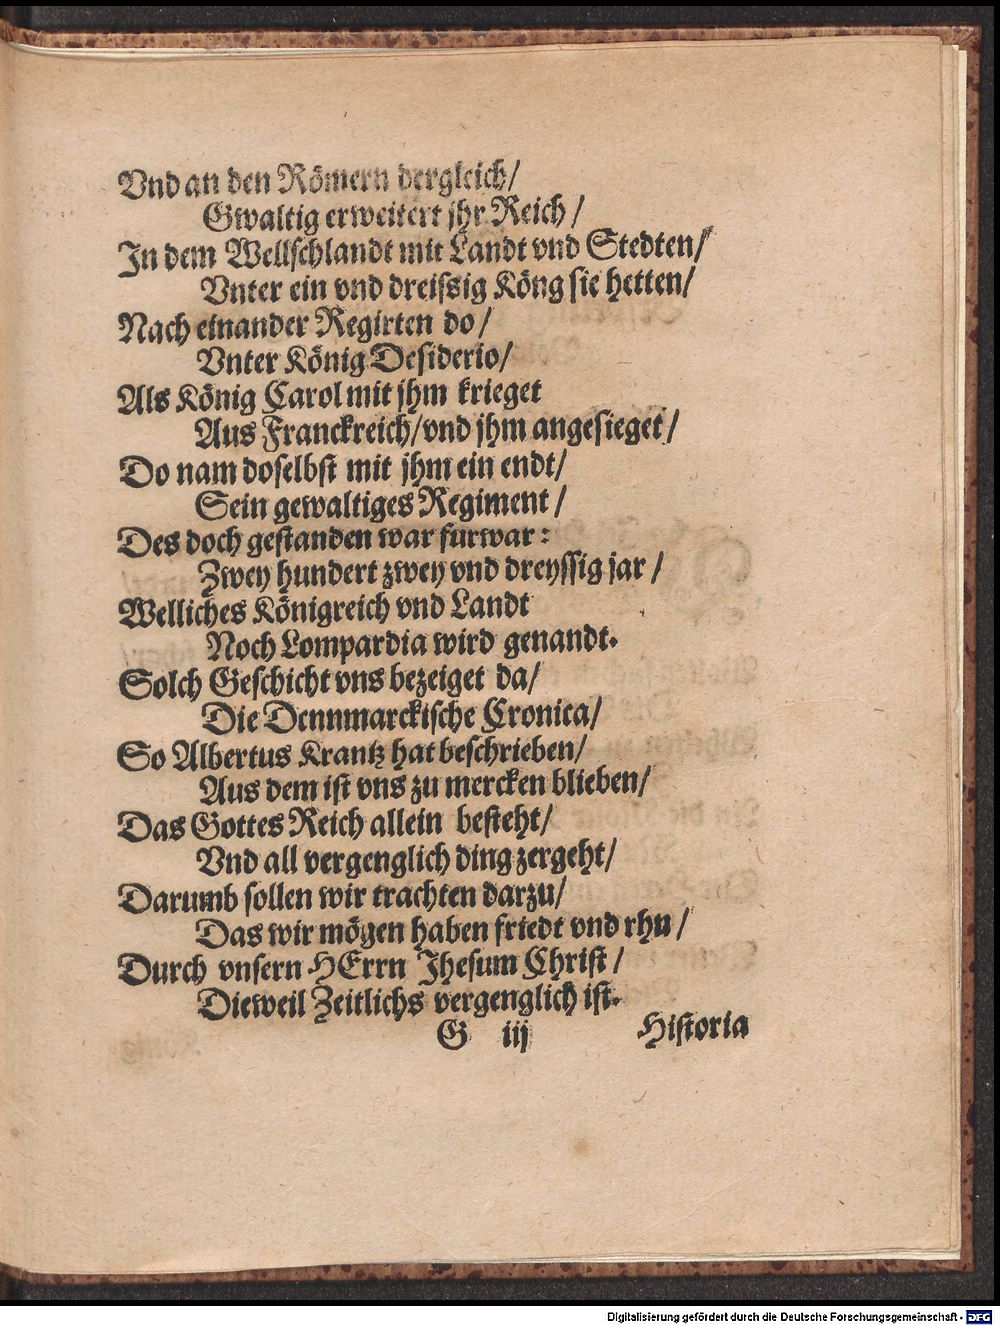 Vnd an den Römern dergleich/
Gwaltig erweitert jhr Reich/
In dem Wellschlandt mit Landt vnd Stedten/
Vnter ein vnd dreissig Köng sie hetten/
Nach einander Regirten do/
Vnter König Desiderio/
Als König Carol mit jhm krieget
Aus Franckreich/vnd jhm angesieget/
Do nam doselbst mit jhm ein endt/
Sein gewaltiges Regiment/
Des doch gestanden war furwar:
Zwey hundert zwey vnd dreyssig jar/
Welliches Königreich vnd Landt
Noch Lompardia wird genandt.
Solch Geschicht vns bezeiget da/
Die Dennmarckische Cronica/
So Albertus Krantz hat beschrieben/
Aus dem ist vns zu mercken blieben/
Das Gottes Reich allein besteht/
Vnd all vergenglich ding zergeht/
Darumb sollen wir trachten darzu/
Das wir mögen haben friedt vnd rhu/
Durch vnsern HErrn Jhesum Christ/
Dieweil Zeitlichs vergenglich ist.
G iij Historia
Digitalisierung gefördert durch die Deutsche Forschungsgemeinschaft - DFG